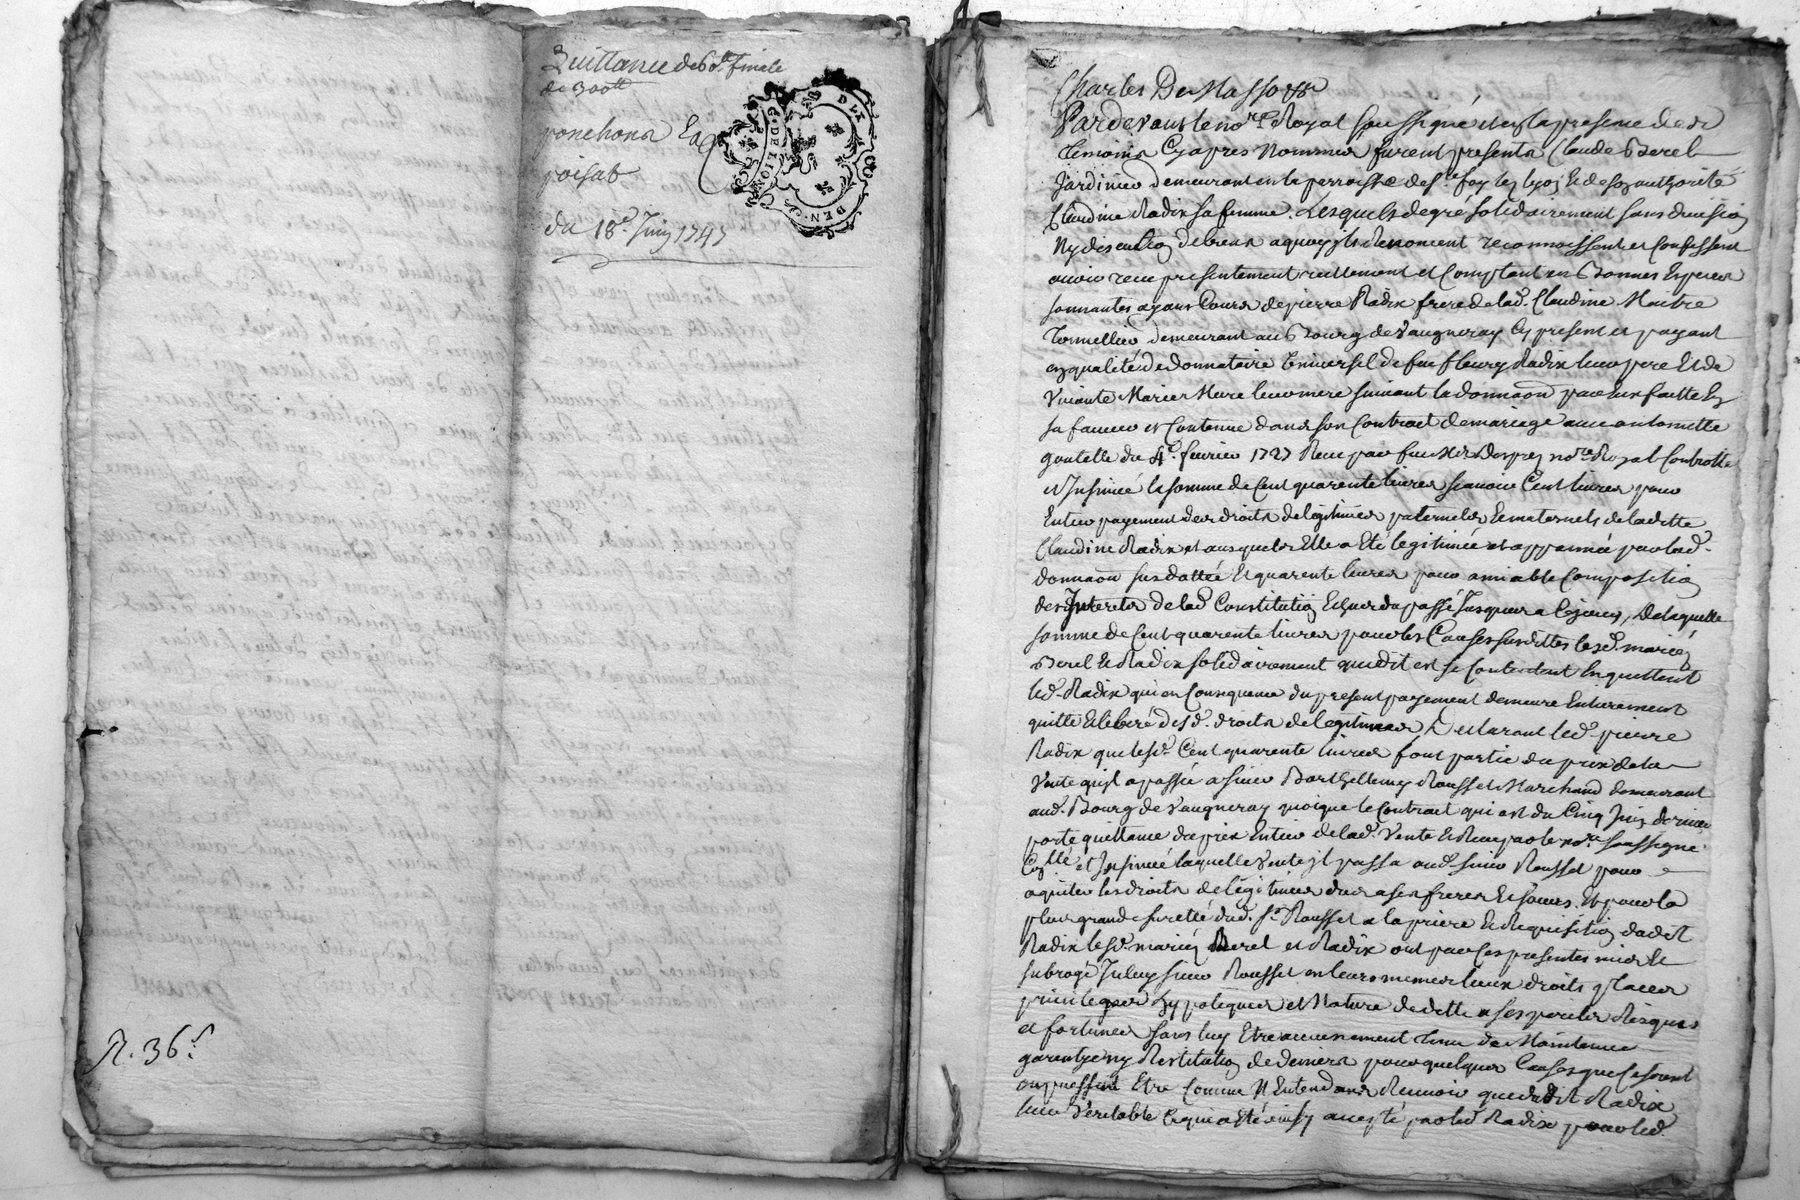 Quittance de 60ₗₜ finale
de 300ₗₜ
ponchon Et
poisat
du 18ᵉ Juin 1747
R. 36ˢ
G. DE LION
DEN
Charles De Masso &ᵃ
Pardevant le noʳᵉ Royal soussigné et en la presence des
temoins Cyapres Nommés furent presents Claude Berel
Jardinier demeurant en la parroisse de sᵗᵉ foy les lyon Et de son authorité
Claudine Radix sa femme. Lesquels de gré solidairement sans division
Ny discution de biens a quoy ils Renoncent reconnoissent et Confessent
avoir receu presentement reellement et Comptant en Bonnes Especes
sonnantes ayans Cours de pierre Radix frere de lad. Claudine Maitre
Tonnellier demeurant au Bourg de Vaugneray Cy present et payant
en qualité de donnataire Universel de feu fleury Radix leur pere Et de
Vivante Marie Mure leur mere suivant la donnaon par Eux faitte En
sa faveur et Contenue dans son Contract de mariage avec antoinette
goutelle du 4ᵉ fevrier 1727 Receu par feu Mᵉ Desprez noʳᵉ Royal Controllé
et Insinué la somme de Cent quarente livres scavoir Cent livres pour
Entier payement des droits de légitimes paternels Et maternels de laditte
Claudine Radix et ausquels Elle a Eté legitimée et appanée par lad.
donnaon susdattée Et quarente livres pour amiable Composition
des Interets de lad. Constitution Echus du passé Jusques a ce jour, De laquelle
somme de Cent quarente livres pour les Causes susdittes lesd. mariés
Berel Et Radix solidairement que dit est se Contentent En quittent
led. Radix qui en Consequence du present payement demeure Entierement
quitte Et liberé desd. droits de legitimes, Declarant led. pierre
Radix que lesd. Cent quarente livres font partie du prix de la
Vente qu'il a passée a sieur Barthellemy Rousset Marchand demeurant
aud. Bourg de Vaugneray quoique le Contract qui est du Cinq Juin dernier
porte quittance du prix Entier de lad. Vente Et Receu par le noʳᵉ soussigné
Coⁿˡˡᵉ et Insinué laquelle Vente il passa aud. sieur Rousset pour
aquiter les droits de légitimes dus a ses freres Et sœurs. Et pour la
plus grande sureté dud. sʳ Rousset a la priere Et Requisition dudit
Radix lesd. mariés Berel et Radix ont par ces presentes mis et
subrogé Iceluy sieur Rousset en leurs memes lieux droits places
privileges hypoteques et Nature de dette a ses perils Risques
et fortunes sans luy Etre aucunement tenu de Maintenue
garentie ny Restitution de deniers pour quelques Causes que ce soient
ou puissent Etre Comme N'Entendans Recevoir que dudit Radix
leur Veritable Ce qui a Eté ainsy accepté par led. Radix pour led.